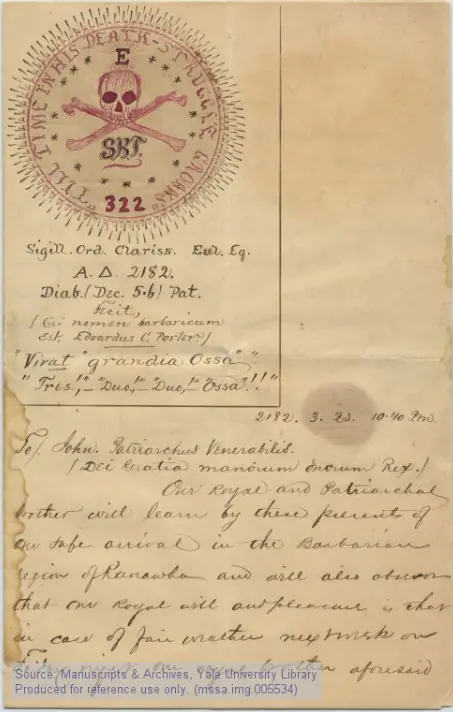 "TILL TIME IN HIS DEATH-STRUGGLE GROANS"
E
S.B.T.
322
Sigill. Ord. Clariss. Eul. Eq.
A. Δ. 2182.
Diab. (Dec. 5.6) Pat.
Fecit,
(Cui nomen barbaricum
Est, Edvardus C. Porter)
"Vivat "grandia Ossa"
"Tres!," "Duo,!" "Duo,!" "Ossa"!!"
2182. 3. 23. 10.40 P.m.
To/ John. Patriarchus Venerabilis.
/ Dei Gratia Rex./
Our Royal and Patriarchal
brother will learn by these presents of
our safe arrival in the Barbarian
region of Kanawha and will also observe
that our royal will and pleasure is that
in case of fair weather next week on
night our royal brother aforesaid
Source: Manuscripts & Archives, Yale University Library
Produced for reference use only. (mssa.img.005534)